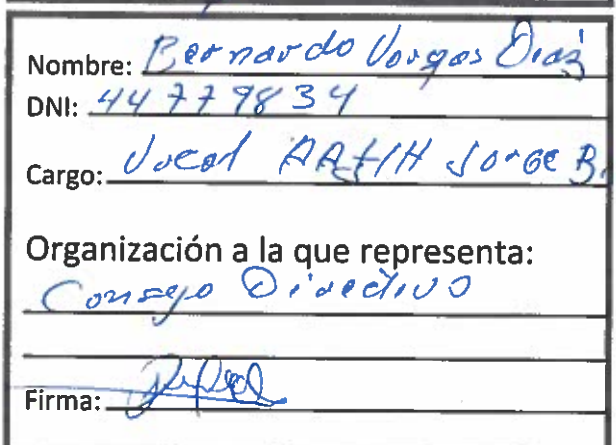 Nombre: Bernardo Vargas Diaz
DNI: 44779834
Cargo: Vocal AA JORGE B.
Organización a la que representa:
Consejo Directivo
Firma: